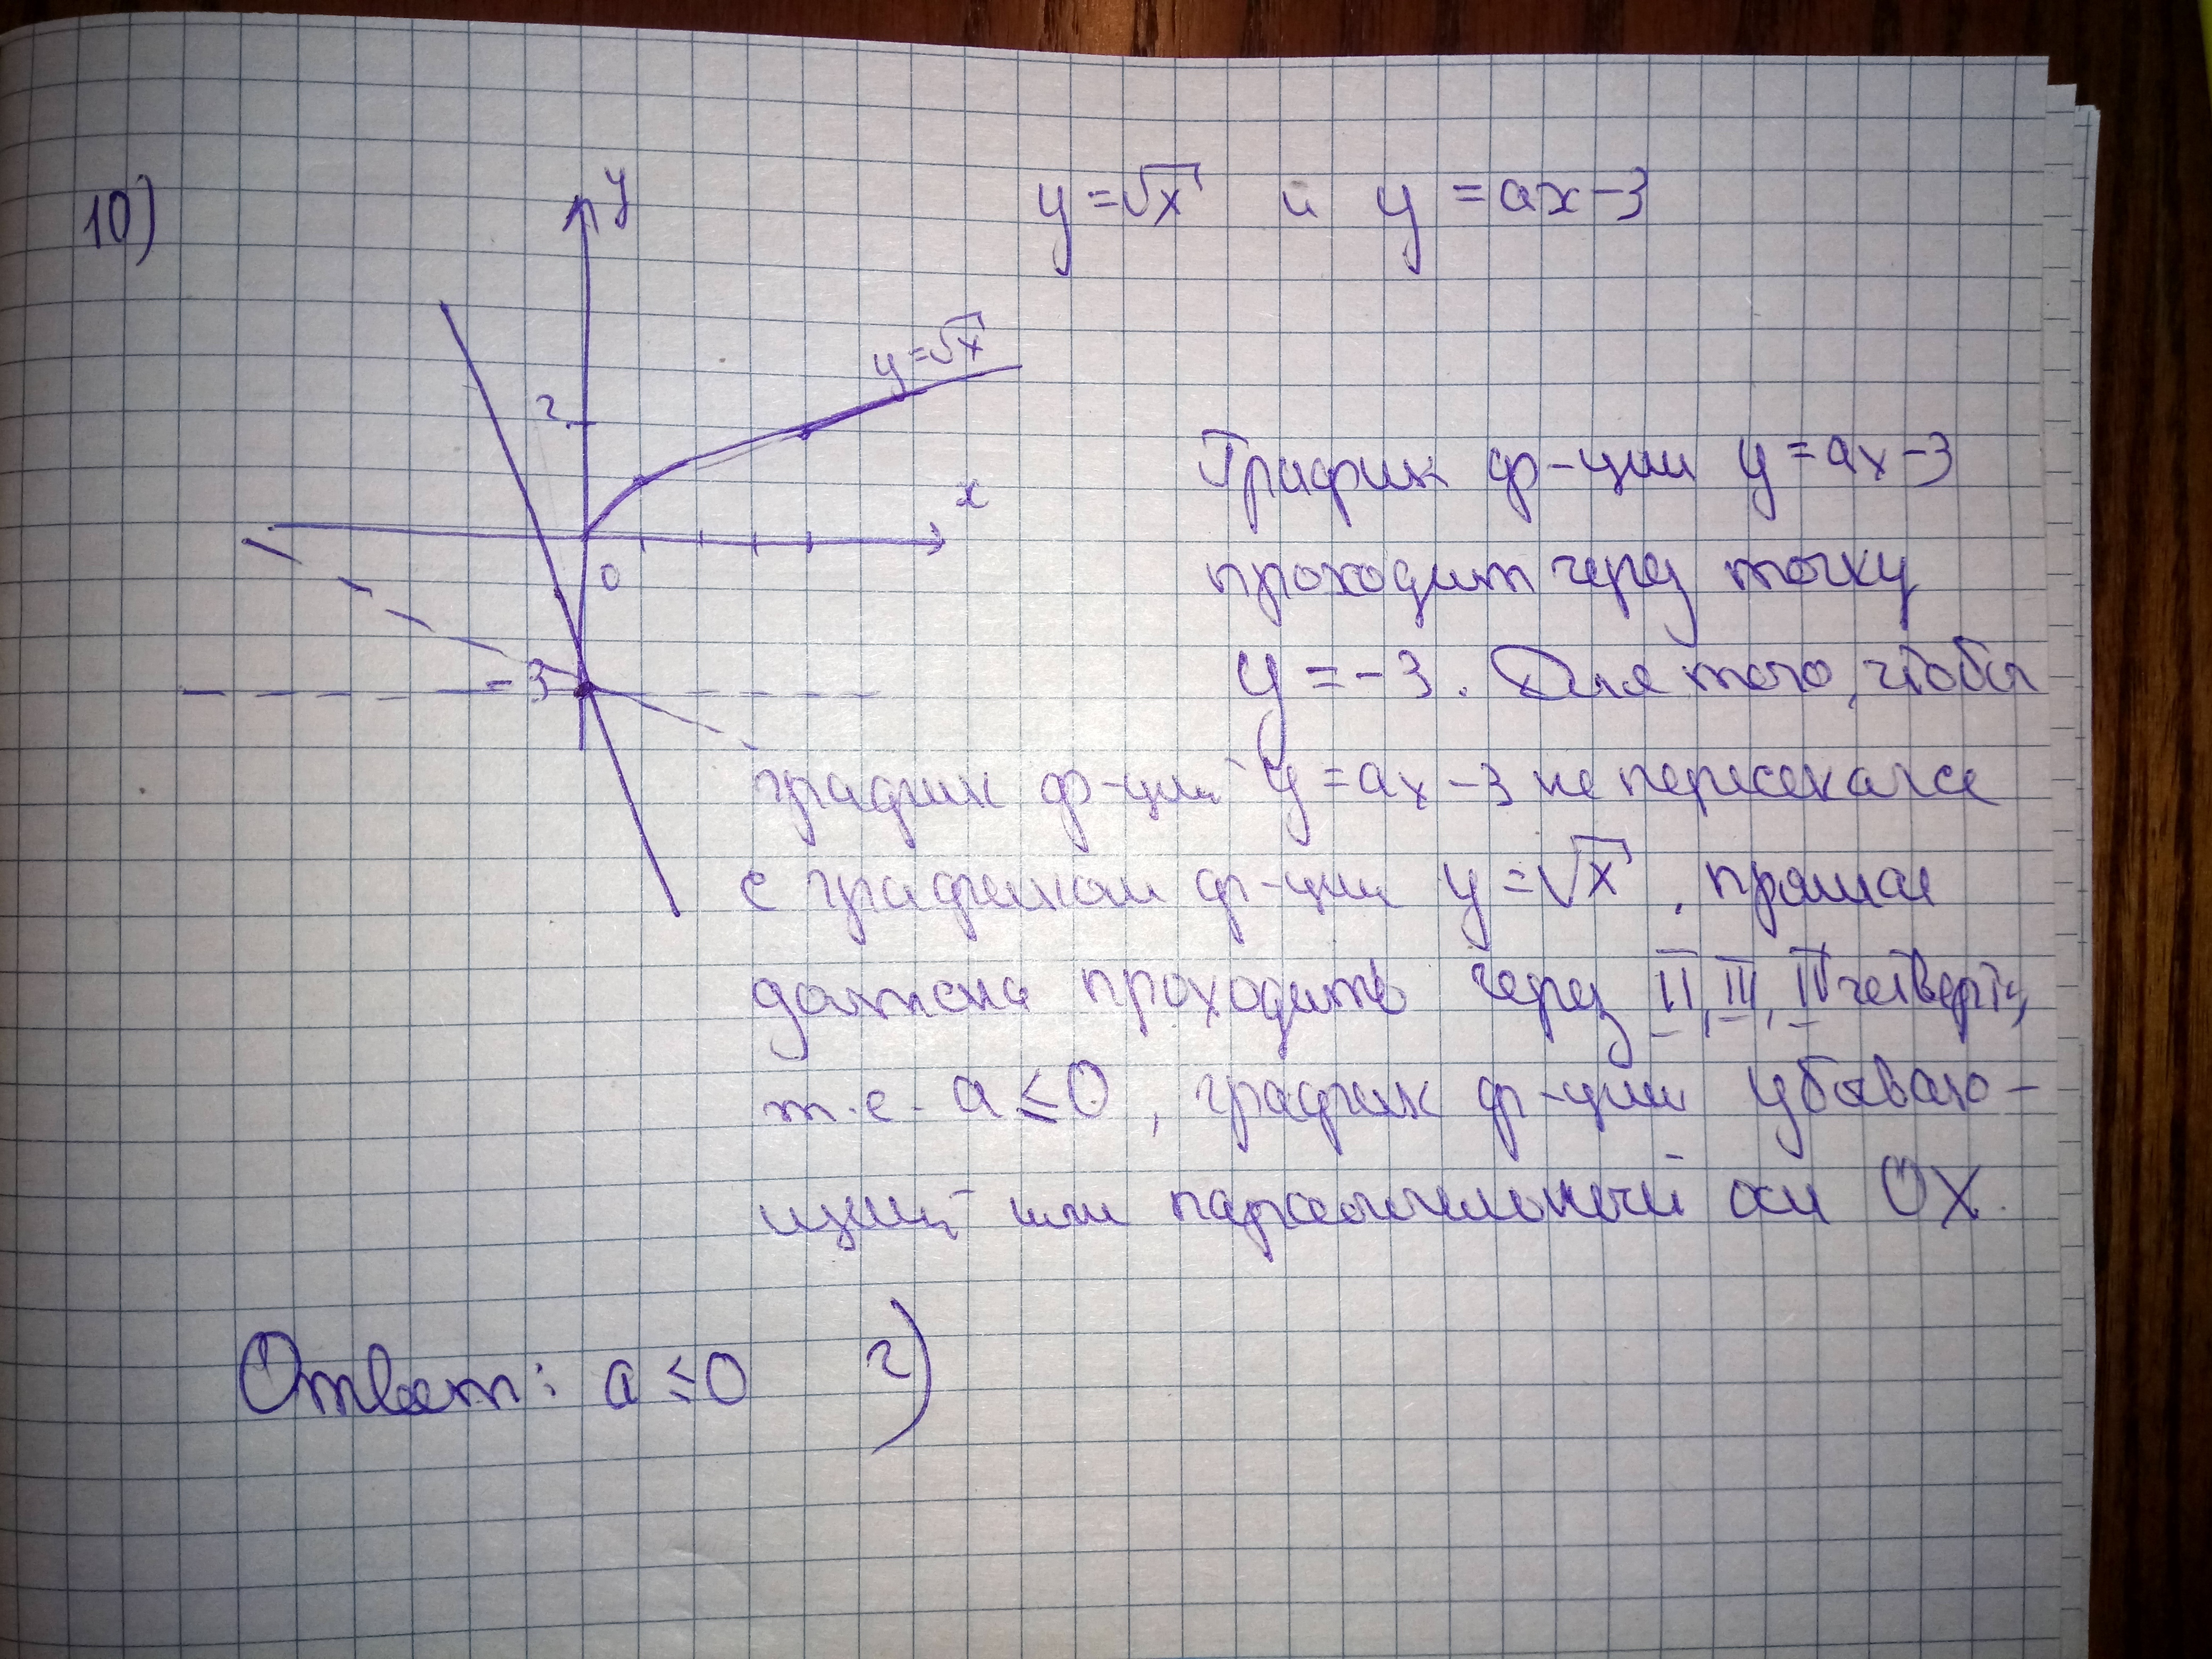 10)
y
y = √x и y = ax - 3
y = √x
2
x
0
График ф-ции y = ax - 3
проходит через точку
- 3
y = - 3. Для того, чтобы
график ф-ции y = ax - 3 не пересекался
с графиком ф-ции y = √x, прямая
должна проходить через II, III, IV четверти,
т.е. a ≤ 0, график ф-ции убываю-
щий или параллельный оси OX.
Ответ: a ≤ 0 г)